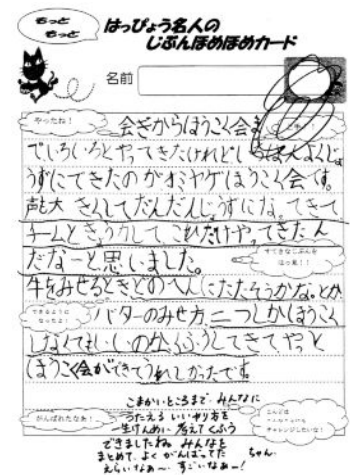 もっと
もっと
はっぴょう名人の
じぶんほめほめカード
名前
やったね！
会ぎからほうこく会ま
でいろいろとやってきたけれど
うずにできたのがオミヤゲほうこく会です。
声も大きくしてだんだんじょうずになってきて、
チームときょう力してこれだけやってきたん
だなーと思いました。
すてきなじぶんを
はっ見！！
牛をみせるときどのへんにたたそうかな。とか
できるように
なったよ！
バターのみせ方、二つしかほうこく
しなくてもいいのかくふうしてきてやっと
ほうこく会ができてうれしかったです。
がんばれたなあ！
こんどは
チャレンジしたいな！
こまかいところまで みんなに
うたえる いいやり方を
生けんめい 考えてくふう
できましたね みんなを
まとめて、よく がんばってた ちゃん
えらいなあ～ すごいなあー！